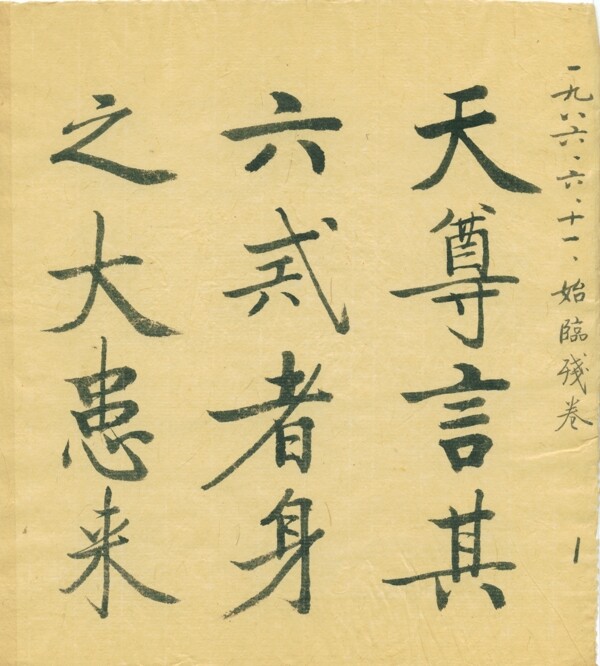 一九八六、六、十一、始臨殘卷
天尊言其
六贰者身
之大患来
1